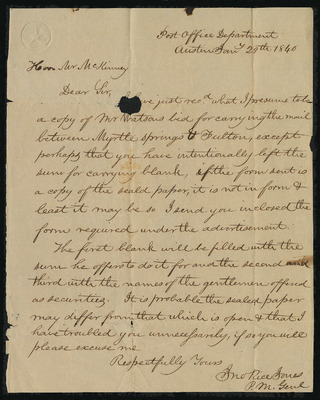 Post Office Department
Austin Jany 29th 1840
Hon Mr McKinney
Dear Sir,
I have just recd what I presume to be
a copy of Mr Watsons bid for carrying the mail
between Myrtle springs & Fulton, except
perhaps that you have intentionally left the
sum for carrying blank, if the form sent is
a copy of the seald paper, it is not in form &
least it may be so I send you inclosed the
form required under the advertisement.
The first blank will be filled with the
sum he offers to do it for and the second and
third with the names of the gentlemen offered
as securities. It is probable the sealed paper
may differ from that which is open & that I
have troubled you unnecessarily, if so you will
please excuse me
Respectfully Yours
Jno Rice Jones
P. M. Genl